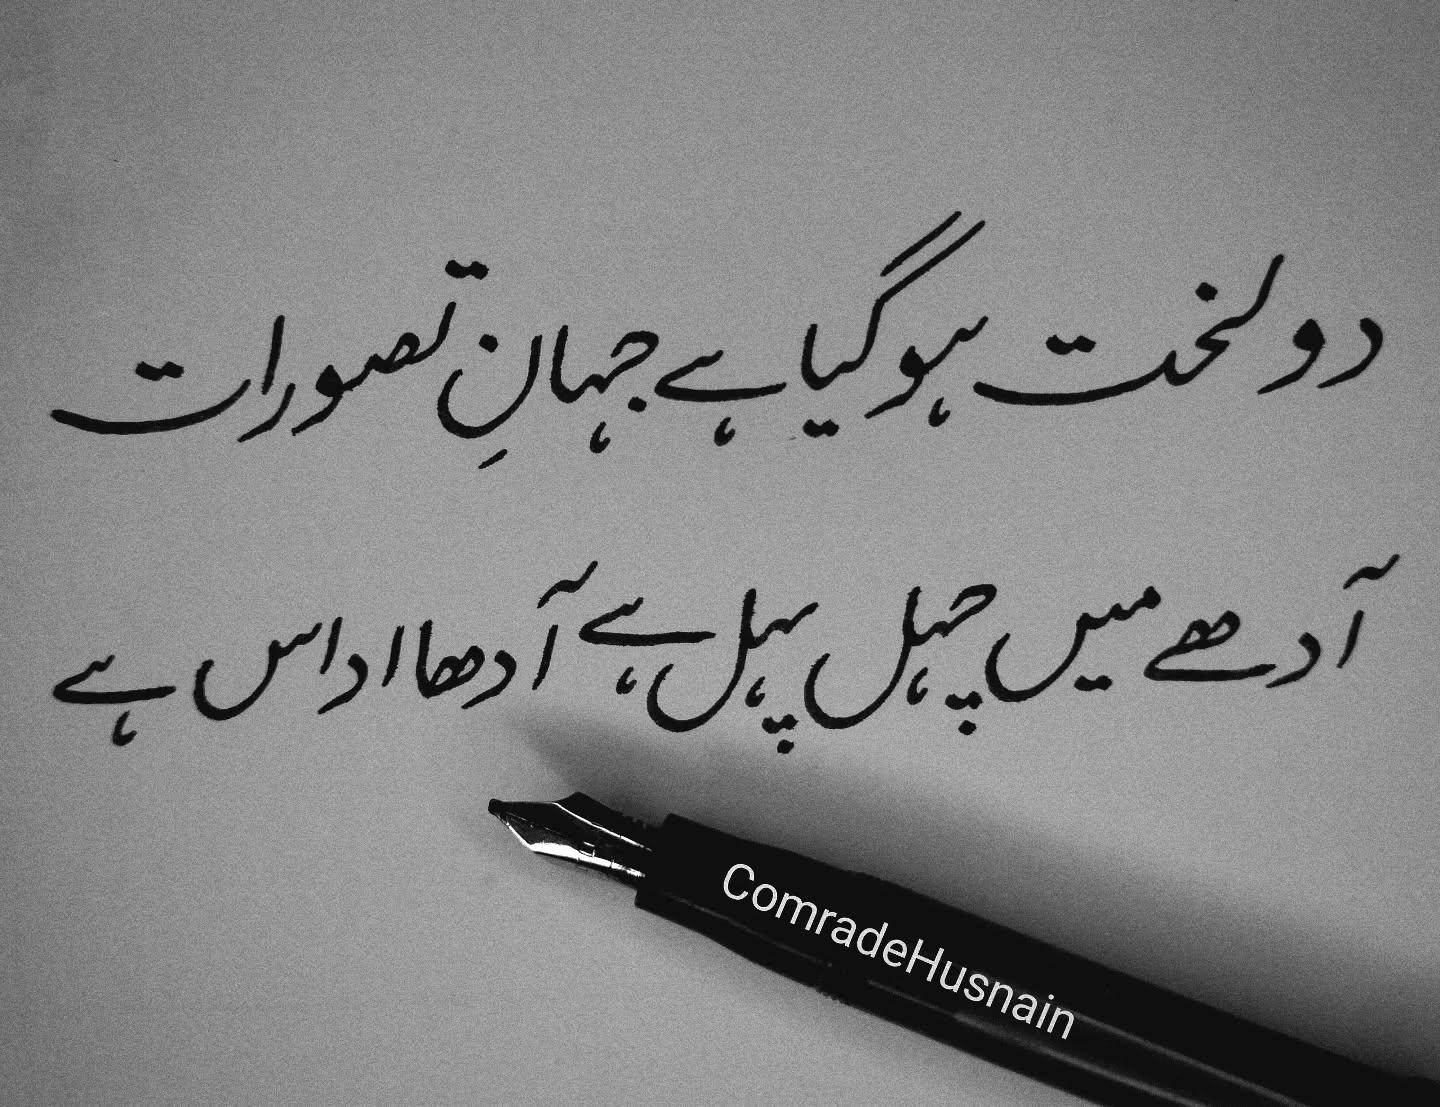 دو لخت ہو گیا ہے جہانِ تصورات
آدھے میں چہل پہل ہے آدھا اداس ہے
ComradeHusnain